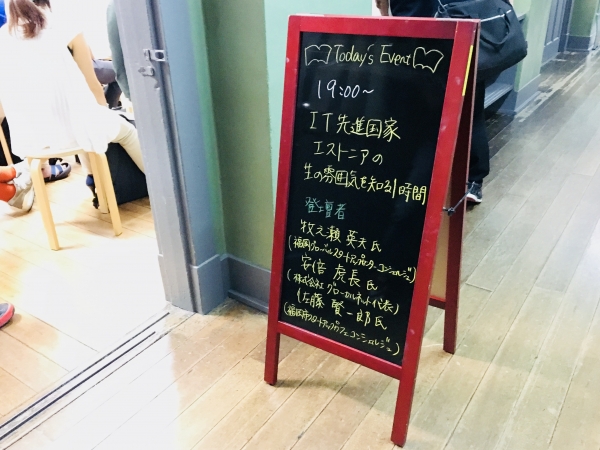 Today's Event
19:00~
IT先進国家
エストニアの
生の雰囲気を知る1時間
登壇者
牧之瀬 英夫氏
(福岡グローバルスタートアップセンターコンシェルジュ)
安倍 虎長氏
(株式会社グローカルネット代表)
佐藤 賢一郎氏
(福岡市スタートアップカフェコンシェルジュ)